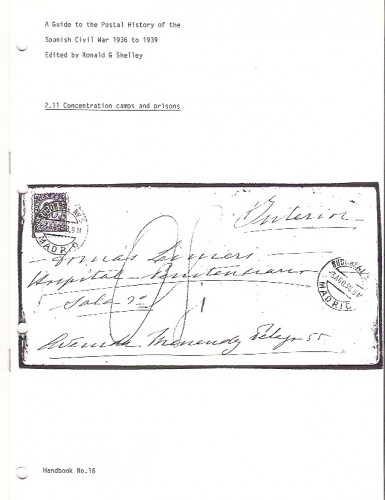 A Guide to the Postal History of the
Spanish Civil War 1936 to 1939
Edited by Ronald G Shelley
2.11 Concentration camps and prisons
Interior
MADRID
Hospital Penitenciario
Sala
MADRID
Avenida Menendez Pelayo 55
Handbook No.16